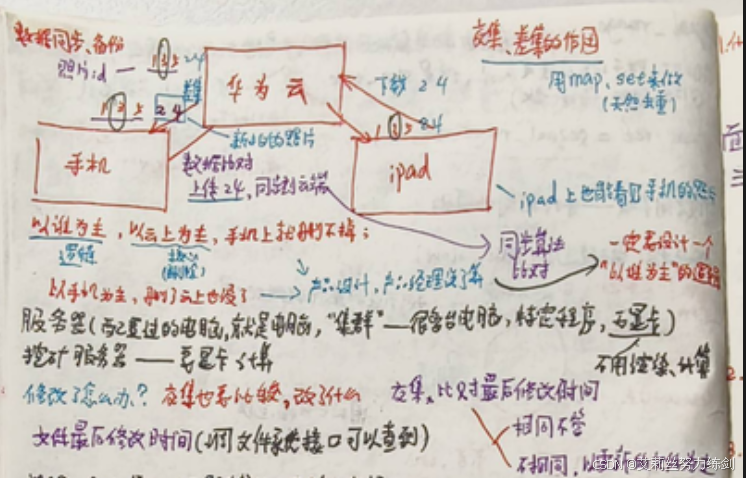 数据同步、备份
交集、差集的作用
照片id — 1 3 5 2 4
用map、set来做
(天然去重)
华为云
下载 2 4
1 3 5 2 4
差集
新增的照片
1 3 5 2 4
手机
数据比对
上传24,同步到云端
ipad
ipad上也能看到手机的照片
以谁为主,以云上为主,手机上删不掉;
逻辑
核心
(删除)
同步算法
比对
一定要设计一个
"以谁为主"的逻辑
以手机为主,删了云上也没了
产品设计,产品经理说了算
服务器(配置过的电脑,就是电脑,"集群"—很多台电脑,特定程序,无显卡)
挖矿服务器 —— 要显卡计算
不用渲染、计算
修改了怎么办?交集也要比较,改了什么
交集,比对最后修改时间
相同不管
文件最后修改时间(调文件系统接口可以查到)
不相同,以最新的文件为主
CSDN @艾莉丝努力练剑